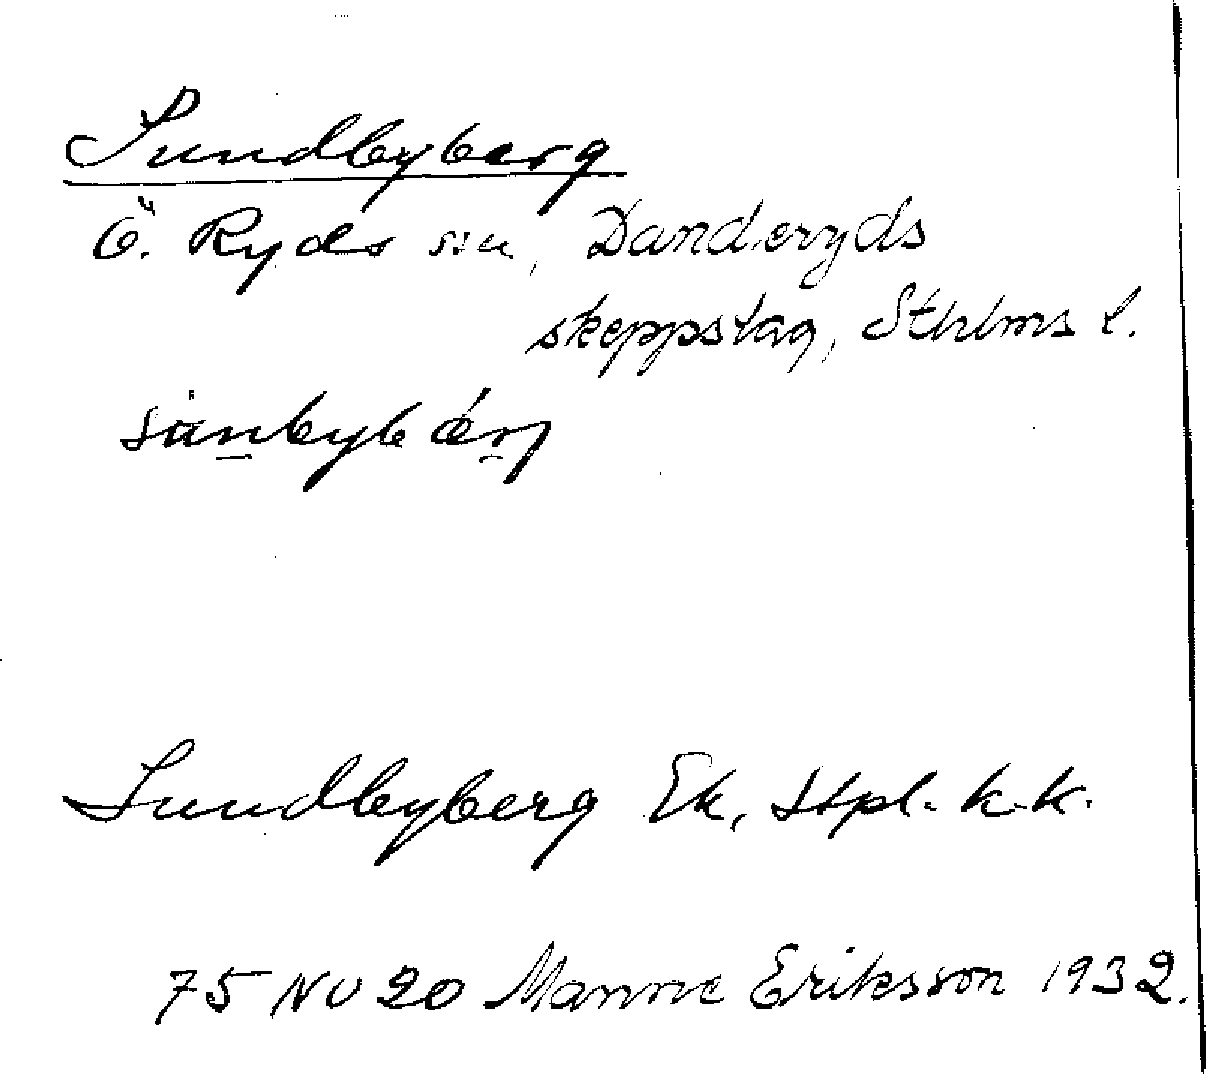 Sundbyberg
Ö. Ryds sn, Danderyds
skeppslag, Sthlms l.
Sundbyberg Ek, Stpl. k.k.
75 NV 20 Manne Eriksson 1932.